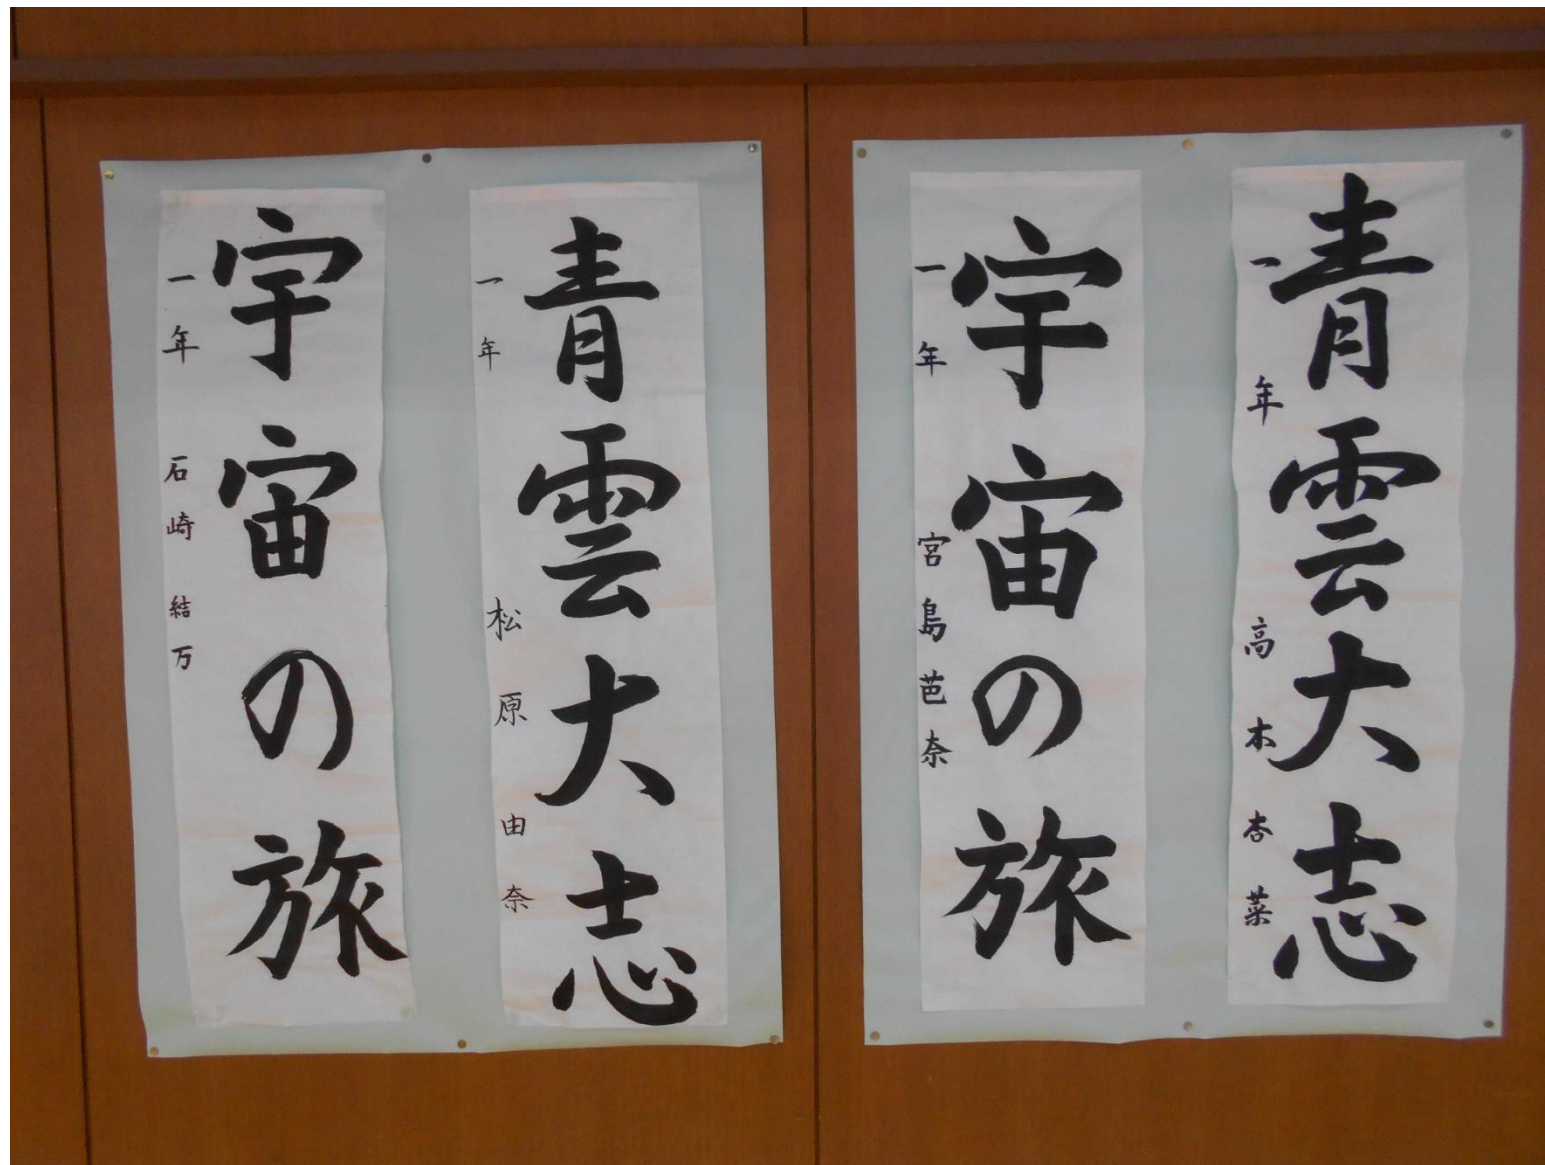 青雲大志
一年 高木杏菜
宇宙の旅
一年 宮島芭奈
青雲大志
一年 松原由奈
宇宙の旅
一年 石崎結万